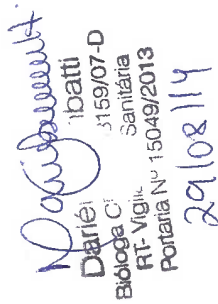 Dariéi ibatti
Bióloga C 3159/07-D
RT- Vigil Sanitária
Portaria Nº 15049/2013
29/08/14